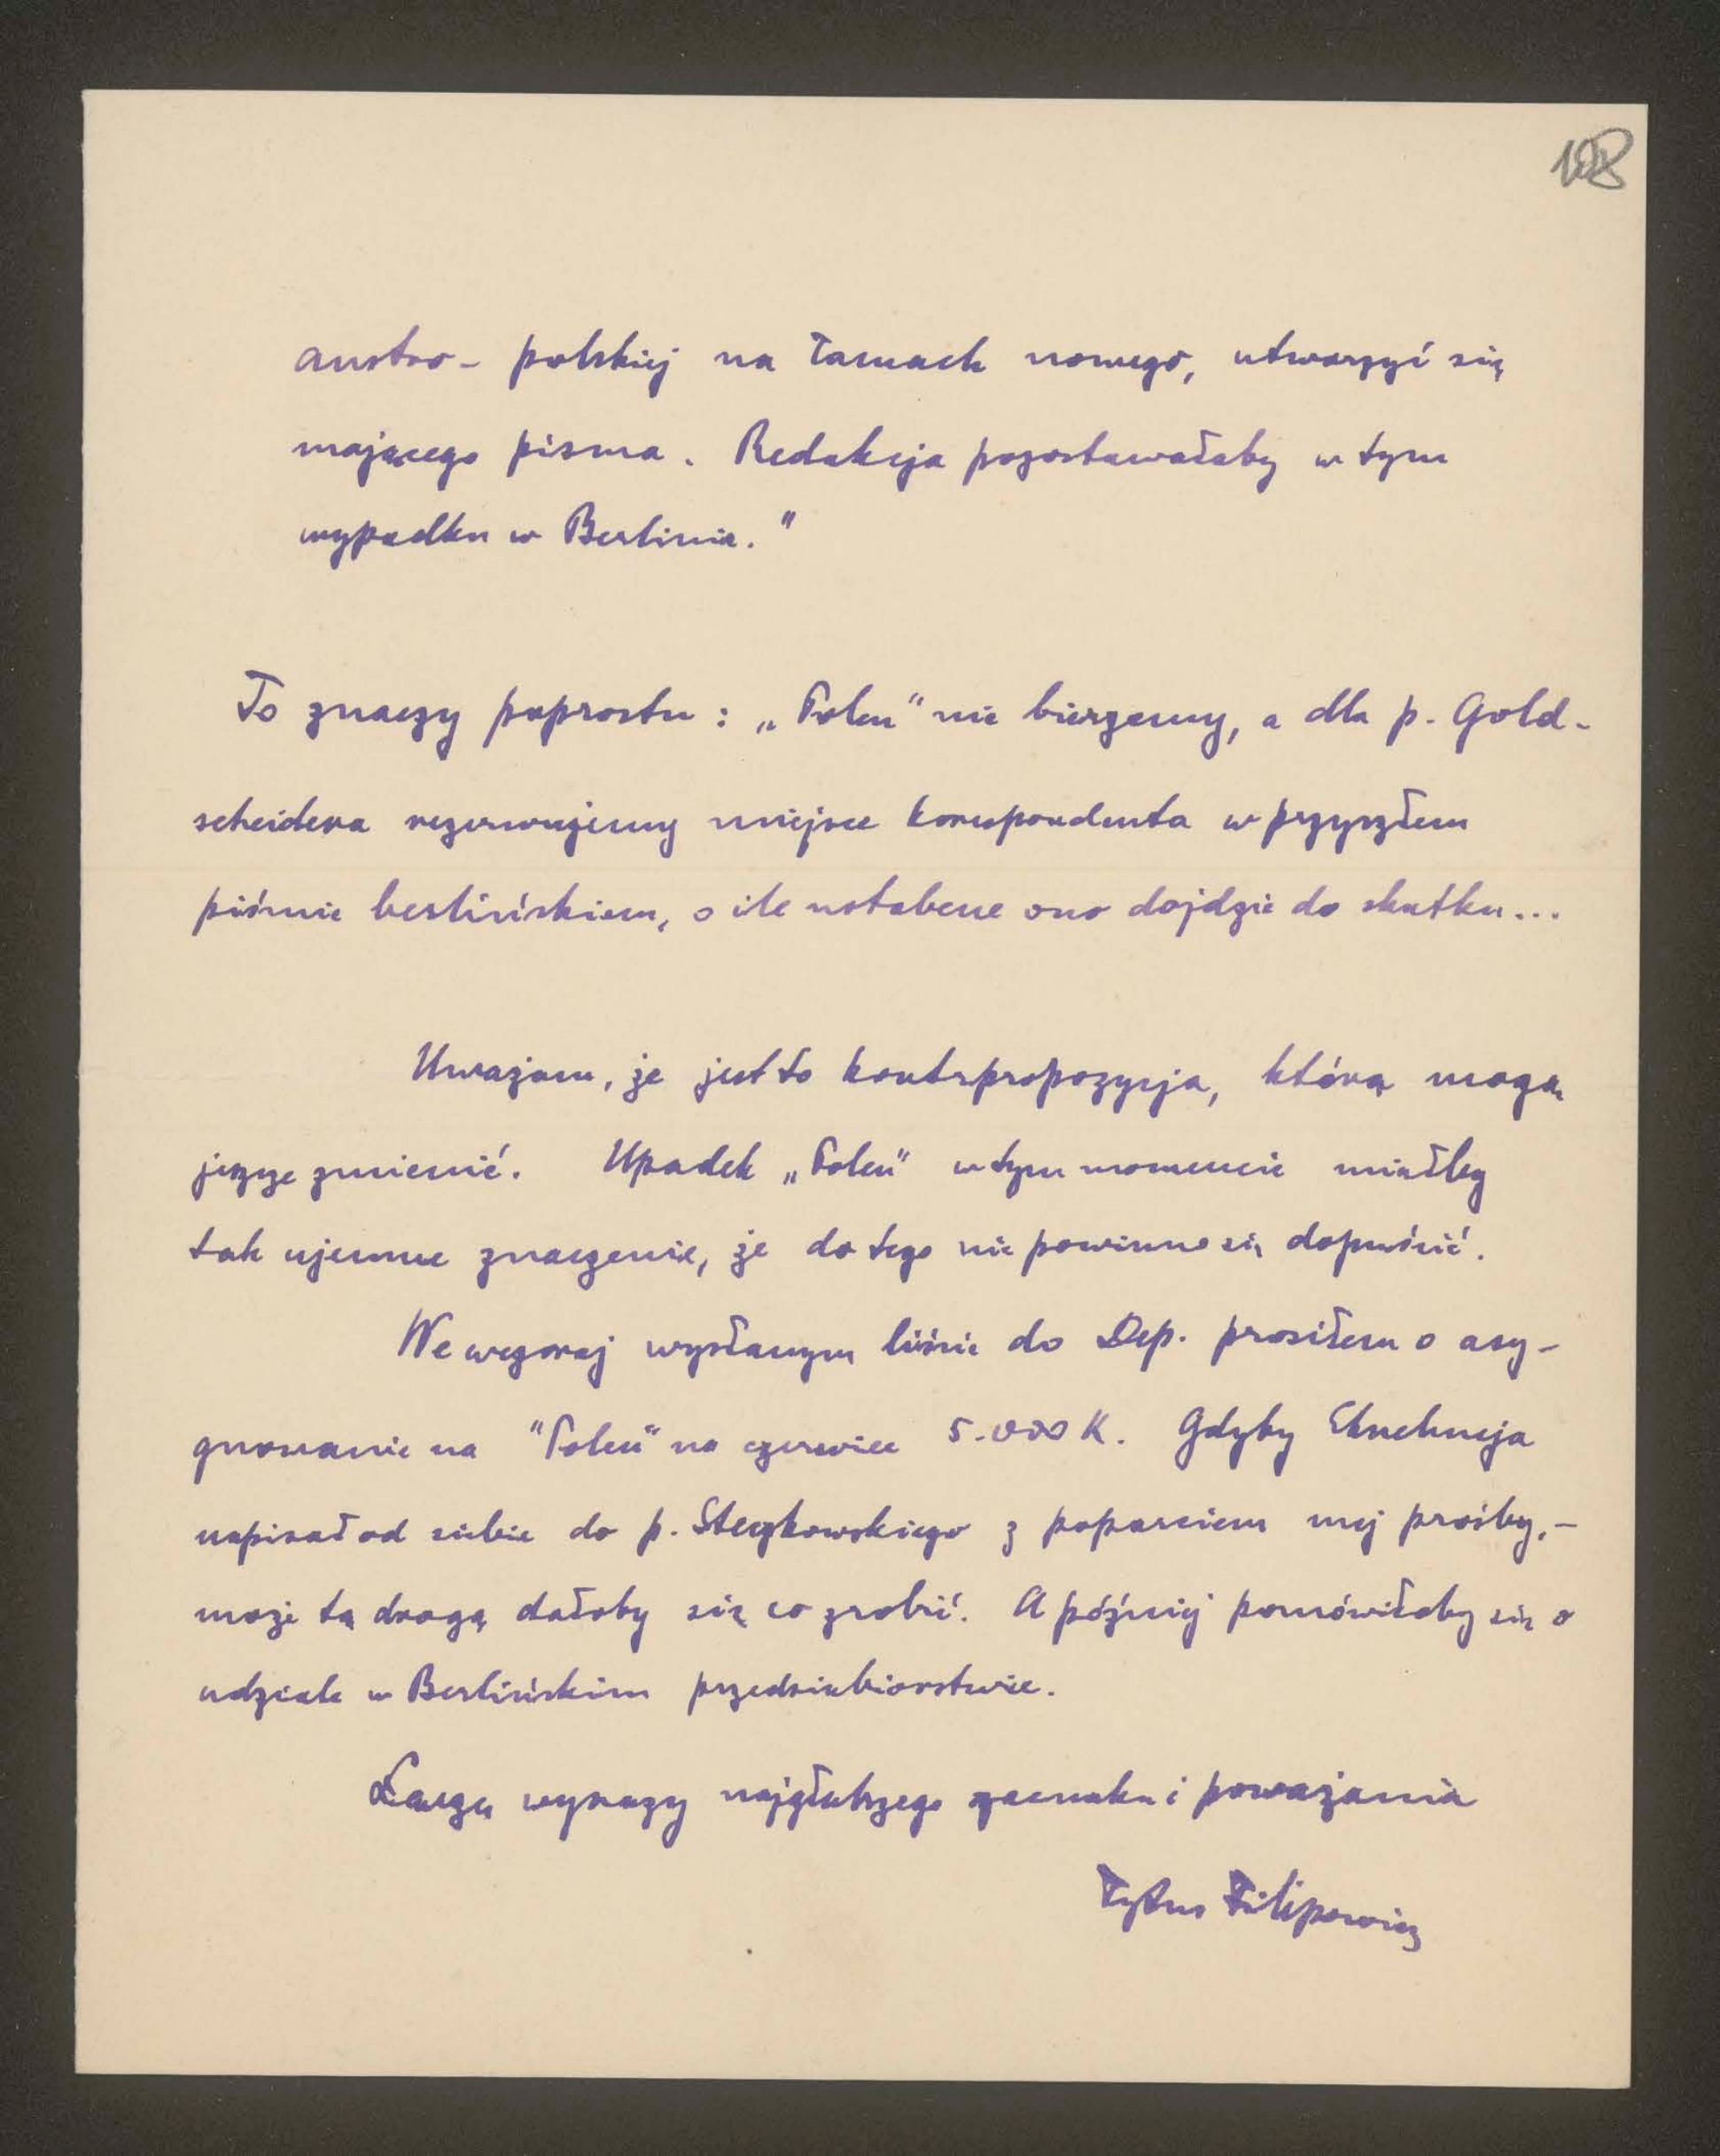 108
austro-polskiej na łamach nowego, utworzyć się
mającego pisma. Redakcja pozostawałaby w tym
wypadku w Berlinie."
To znaczy poprostu: „Polen" nie bierzemy, a dla p. Gold-
scheidera rezerwujemy miejsce korespondenta w przyszłem
piśmie berlińskiem, o ile notabene ono dojdzie do skutku...
Uważam, że jest to kontrpropozycja, którą mogą
jeszcze zmienić. Upadek „Polen" w tym momencie miałby
tak ujemne znaczenie, że do tego nie powinno się dopuścić.
We wczoraj wysłanym liście do Dep. prosiłem o asy-
gnowanie na "Polen" na czerwiec 5.000 K. Gdyby
napisał od siebie do p. Steczkowskiego z poparciem mej prośby, —
może tą drogą dałoby się co zrobić. A później pomówiłoby się o
udziale w Berlińskim przedsiębiorstwie.
Łączę wyrazy najgłębszego szacunku i poważania
Tytus Filipowicz